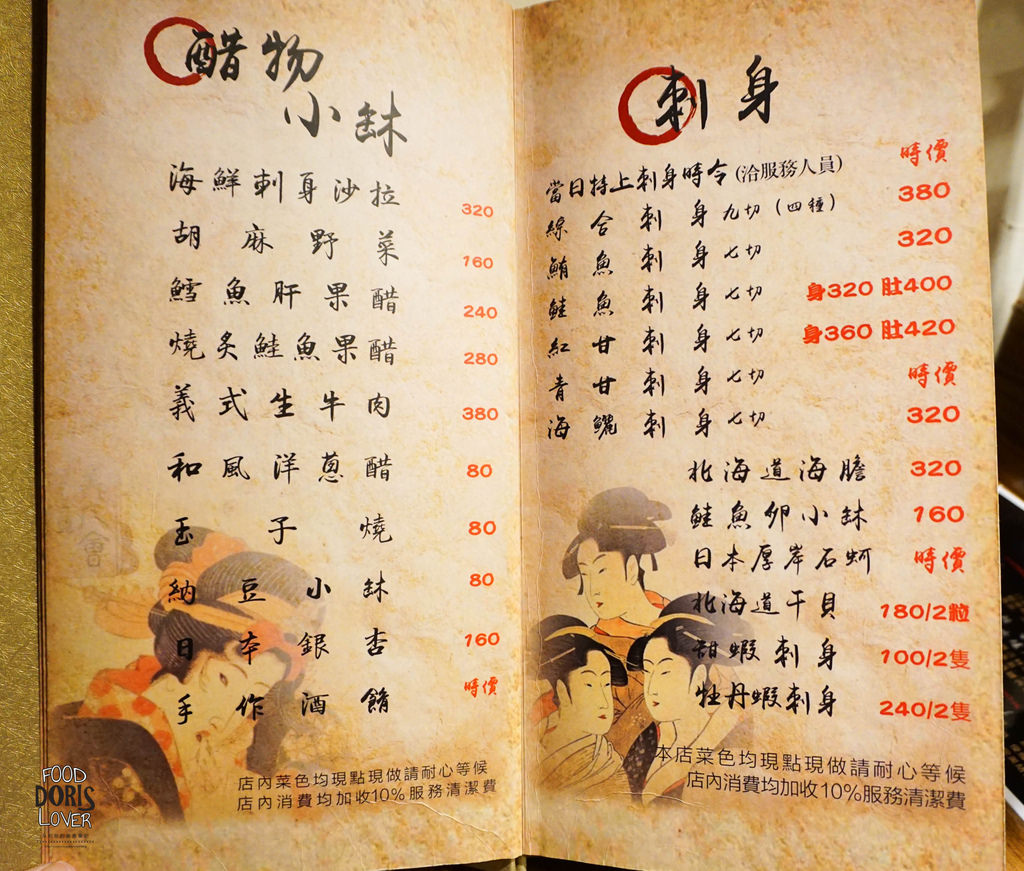 醋物
小缽
海鮮刺身沙拉 320
胡麻野菜 160
鱈魚肝果醋 240
燒炙鮭魚果醋 280
義式生牛肉 380
和風洋蔥醋 80
玉子燒 80
納豆小缽 80
日本銀杏 160
手作酒餚 時價
店內菜色均現點現做請耐心等候
店內消費均加收10%服務清潔費
刺身
當日特上刺身時令(洽服務人員) 時價
綜合刺身九切(四種) 380
鮪魚刺身七切 320
鮭魚刺身七切 身320 肚400
紅甘刺身七切 身360 肚420
青甘刺身七切 時價
海鱺刺身七切 320
北海道海膽 320
鮭魚卵小缽 160
日本厚岸石蚵 時價
北海道干貝 180/2粒
甜蝦刺身 100/2隻
牡丹蝦刺身 240/2隻
本店菜色均現點現做請耐心等候
店內消費均加收10%服務清潔費
FOOD
DORIS
LOVER